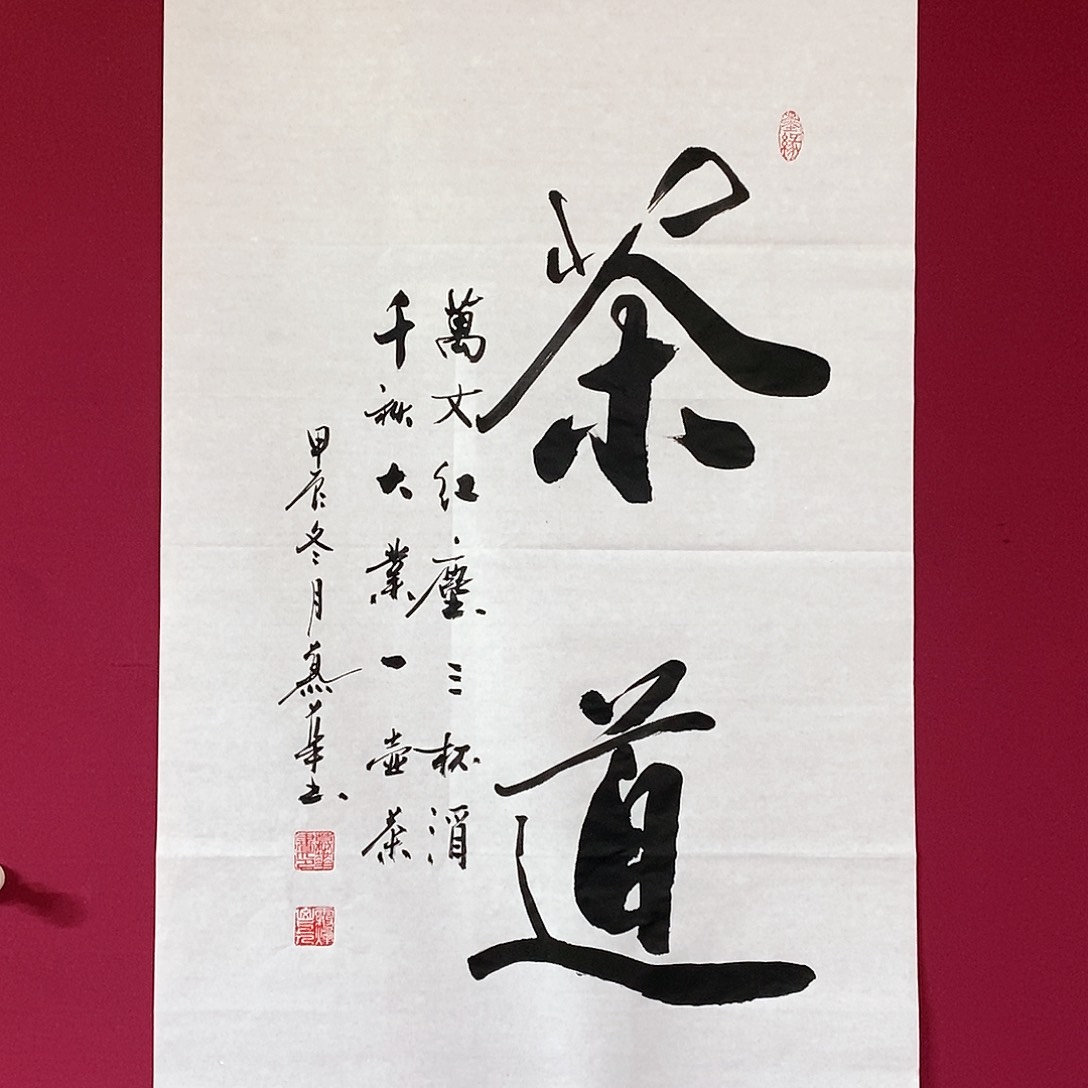 茶道
萬丈紅塵三杯酒
千秋大業一壺茶
甲辰冬月慕華書
墨缘